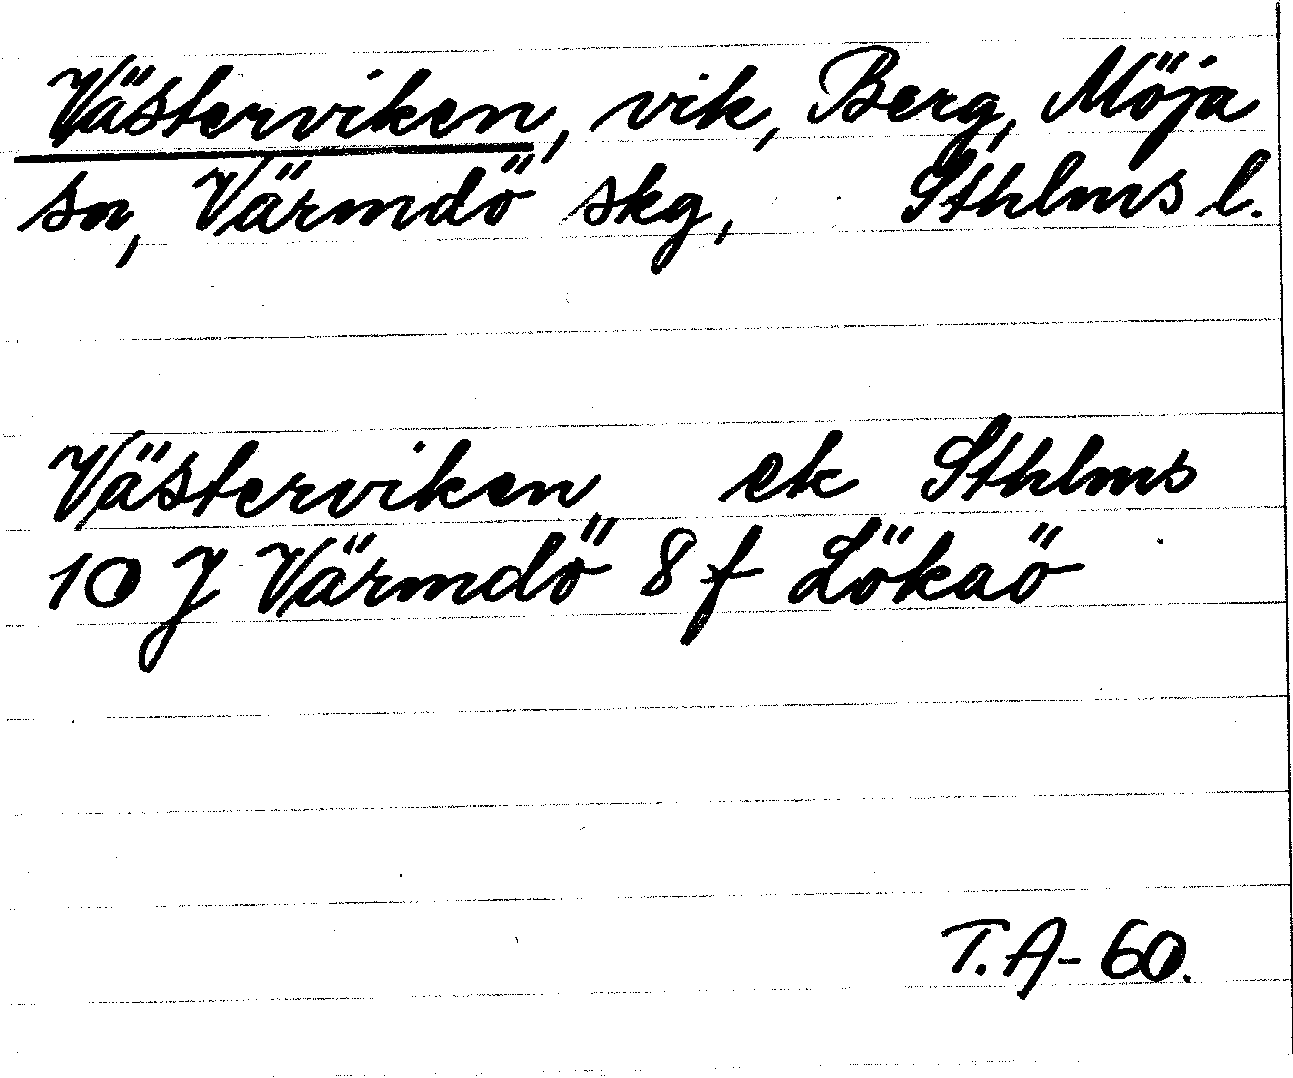 Västerviken, vik, Berg, Möja
sn, Värmdö skg, Sthlms l.
Västerviken ek Sthlms
10 J Värmdö 8 f Lökaö
T.A-60.